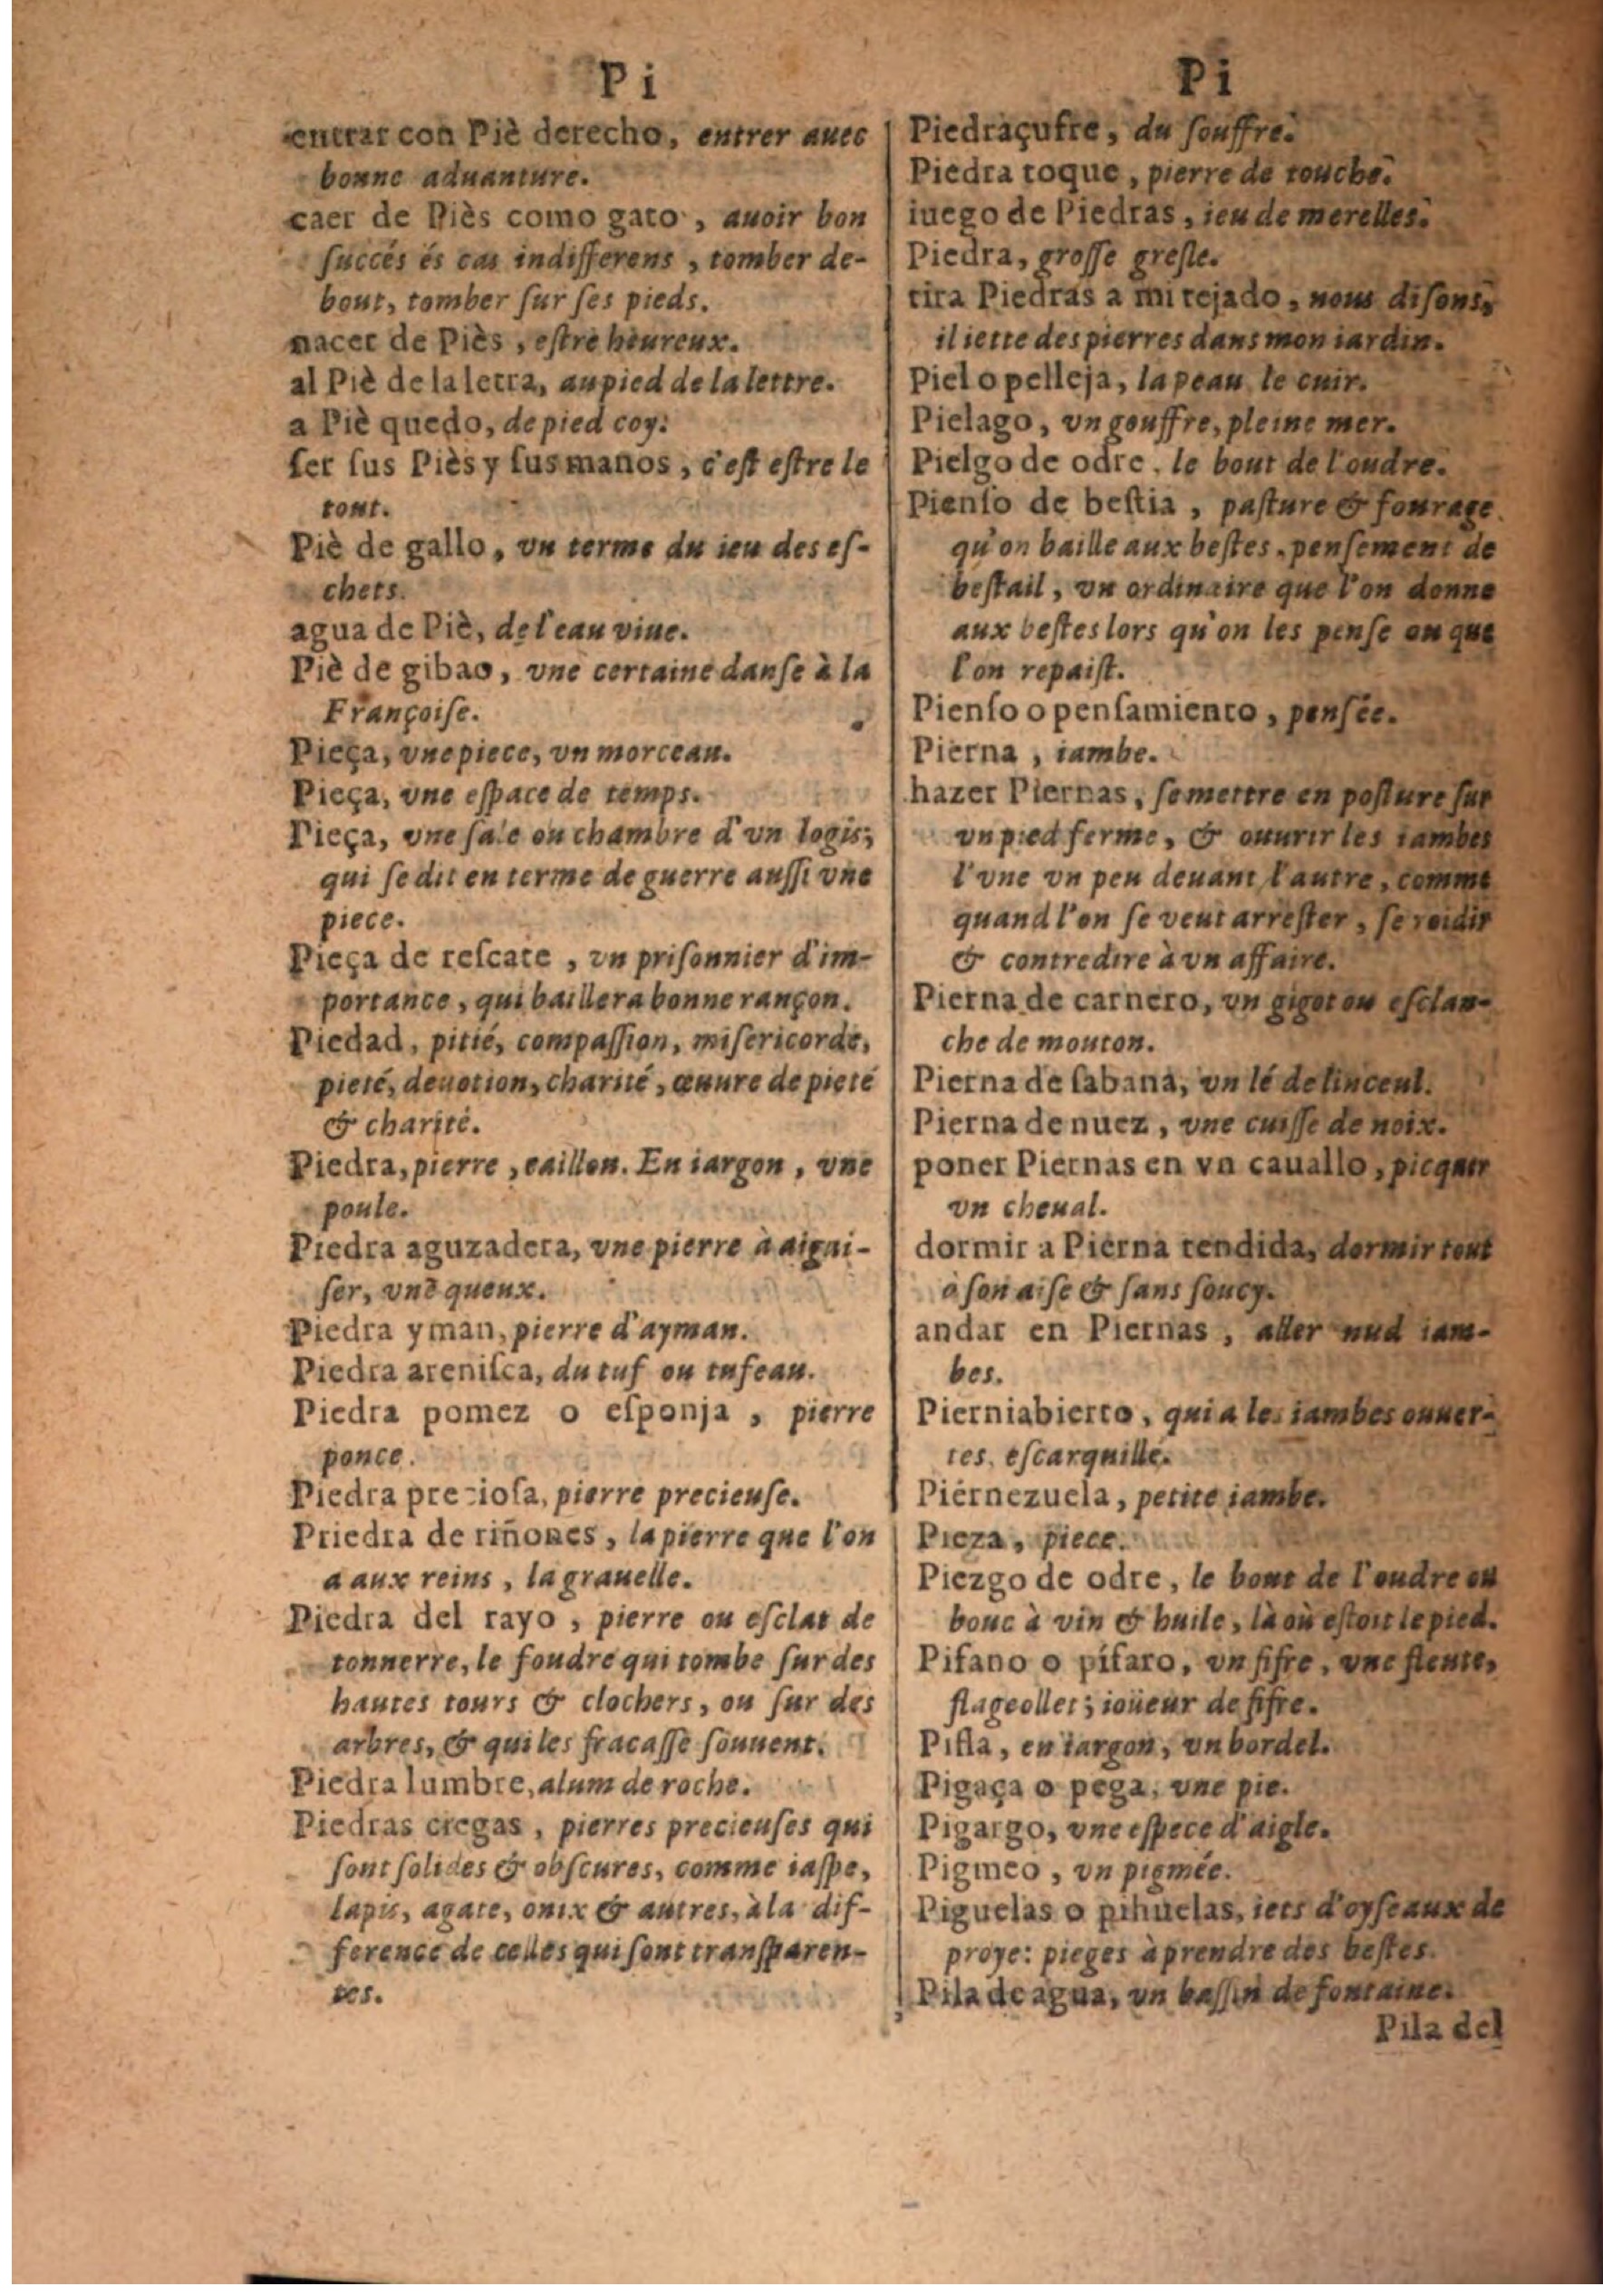 Pi
entrar con Piè derecho, entrer auec
bonne aduanture.
caer de Piès como gato, auoir bon
ſuccés és cas indifferens, tomber de-
bout, tomber ſur ſes pieds.
nacer de Piès, eſtre heureux.
al Piè de la letra, au pied de la lettre.
a Piè quedo, de pied coy.
ſer ſus Piès y ſus manos, c'eſt eſtre le
tout.
Piè de gallo, vn terme du ieu des eſ-
chets.
agua de Piè, de l'eau viue.
Piè de gibao, vne certaine danſe à la
Françoiſe.
Pieça, vne piece, vn morceau.
Pieça, vne eſpace de temps.
Pieça, vne ſale ou chambre d'vn logis;
qui ſe dit en terme de guerre auſſi vne
piece.
Pieça de reſcate, vn priſonnier d'im-
portance, qui baillera bonne rançon.
Piedad, pitié, compaſſion, miſericorde,
pieté, deuotion, charité, œuure de pieté
& charité.
Piedra, pierre, caillou. En iargon, vne
poule.
Piedra aguzadera, vne pierre à aigui-
ſer, vne queux.
Piedra yman, pierre d'ayman.
Piedra areniſca, du tuf ou tufeau.
Piedra pomez o eſponja, pierre
ponce.
Piedra precioſa, pierre precieuſe.
Priedra de riñones, la pierre que l'on
a aux reins, la grauelle.
Piedra del rayo, pierre ou eſclat de
tonnerre, le foudre qui tombe ſur des
hautes tours & clochers, ou ſur des
arbres, & qui les fracaſſe ſouuent.
Piedra lumbre, alum de roche.
Piedras cregas, pierres precieuſes qui
ſont ſolides & obſcures, comme iaſpe,
lapis, agate, onix & autres, à la dif-
ference de celles qui ſont tranſparen-
tes.
Pi
Piedraçufre, du ſouffre.
Piedra toque, pierre de touche.
iuego de Piedras, ieu de merelles.
Piedra, groſſe greſle.
tira Piedras a mi tejado, nous diſons,
il iette des pierres dans mon iardin.
Piel o pelleja, la peau, le cuir.
Pielago, vn gouffre, pleine mer.
Pielgo de odre, le bout de l'oudre.
Pienſo de beſtia, paſture & fourage
qu'on baille aux beſtes, penſement de
beſtail, vn ordinaire que l'on donne
aux beſtes lors qu'on les penſe ou que
l'on repaiſt.
Pienſo o penſamiento, penſée.
Pierna, iambe.
hazer Piernas, ſe mettre en poſture ſur
vn pied ferme, & ouurir les iambes
l'vne vn peu deuant l'autre, comme
quand l'on ſe veut arreſter, ſe roidir
& contredire à vn affaire.
Pierna de carnero, vn gigot ou eſclan-
che de mouton.
Pierna de ſabana, vn lé de linceul.
Pierna de nuez, vne cuiſſe de noix.
poner Piernas en vn cauallo, picquer
vn cheual.
dormir a Pierna tendida, dormir tout
à ſon aiſe & ſans ſoucy.
andar en Piernas, aller nud iam-
bes.
Pierniabierto, qui a les iambes ouuer-
tes, eſcarquillé.
Piernezuela, petite iambe.
Pieza, piece.
Piezgo de odre, le bout de l'oudre ou
bouc à vin & huile, là où eſtoit le pied.
Pifano o pífaro, vn fifre, vne fleute,
flageollet; ioüeur de fifre.
Pifla, en iargon, vn bordel.
Pigaça o pega, vne pie.
Pigargo, vne eſpece d'aigle.
Pigmeo, vn pigmée.
Piguelas o pihuelas, iets d'oyſeaux de
proye: pieges à prendre des beſtes.
Pila de agua, vn baſſin de fontaine.
Pila del